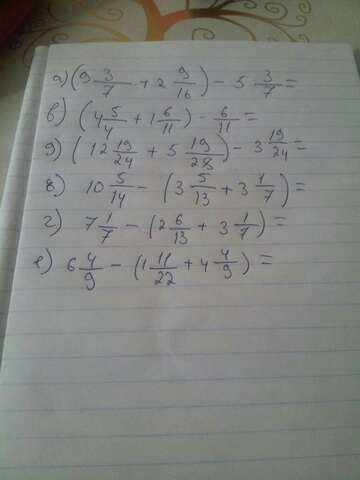 а) (9 3/7 + 2 9/16) - 5 3/7 =
в) (4 5/14 + 1 6/11) - 6/11 =
д) (12 19/24 + 5 19/28) - 3 19/24 =
б) 10 5/14 - (3 5/13 + 3 1/7) =
г) 7 1/7 - (2 6/13 + 3 1/7) =
е) 6 4/9 - (1 11/22 + 4 4/9) =